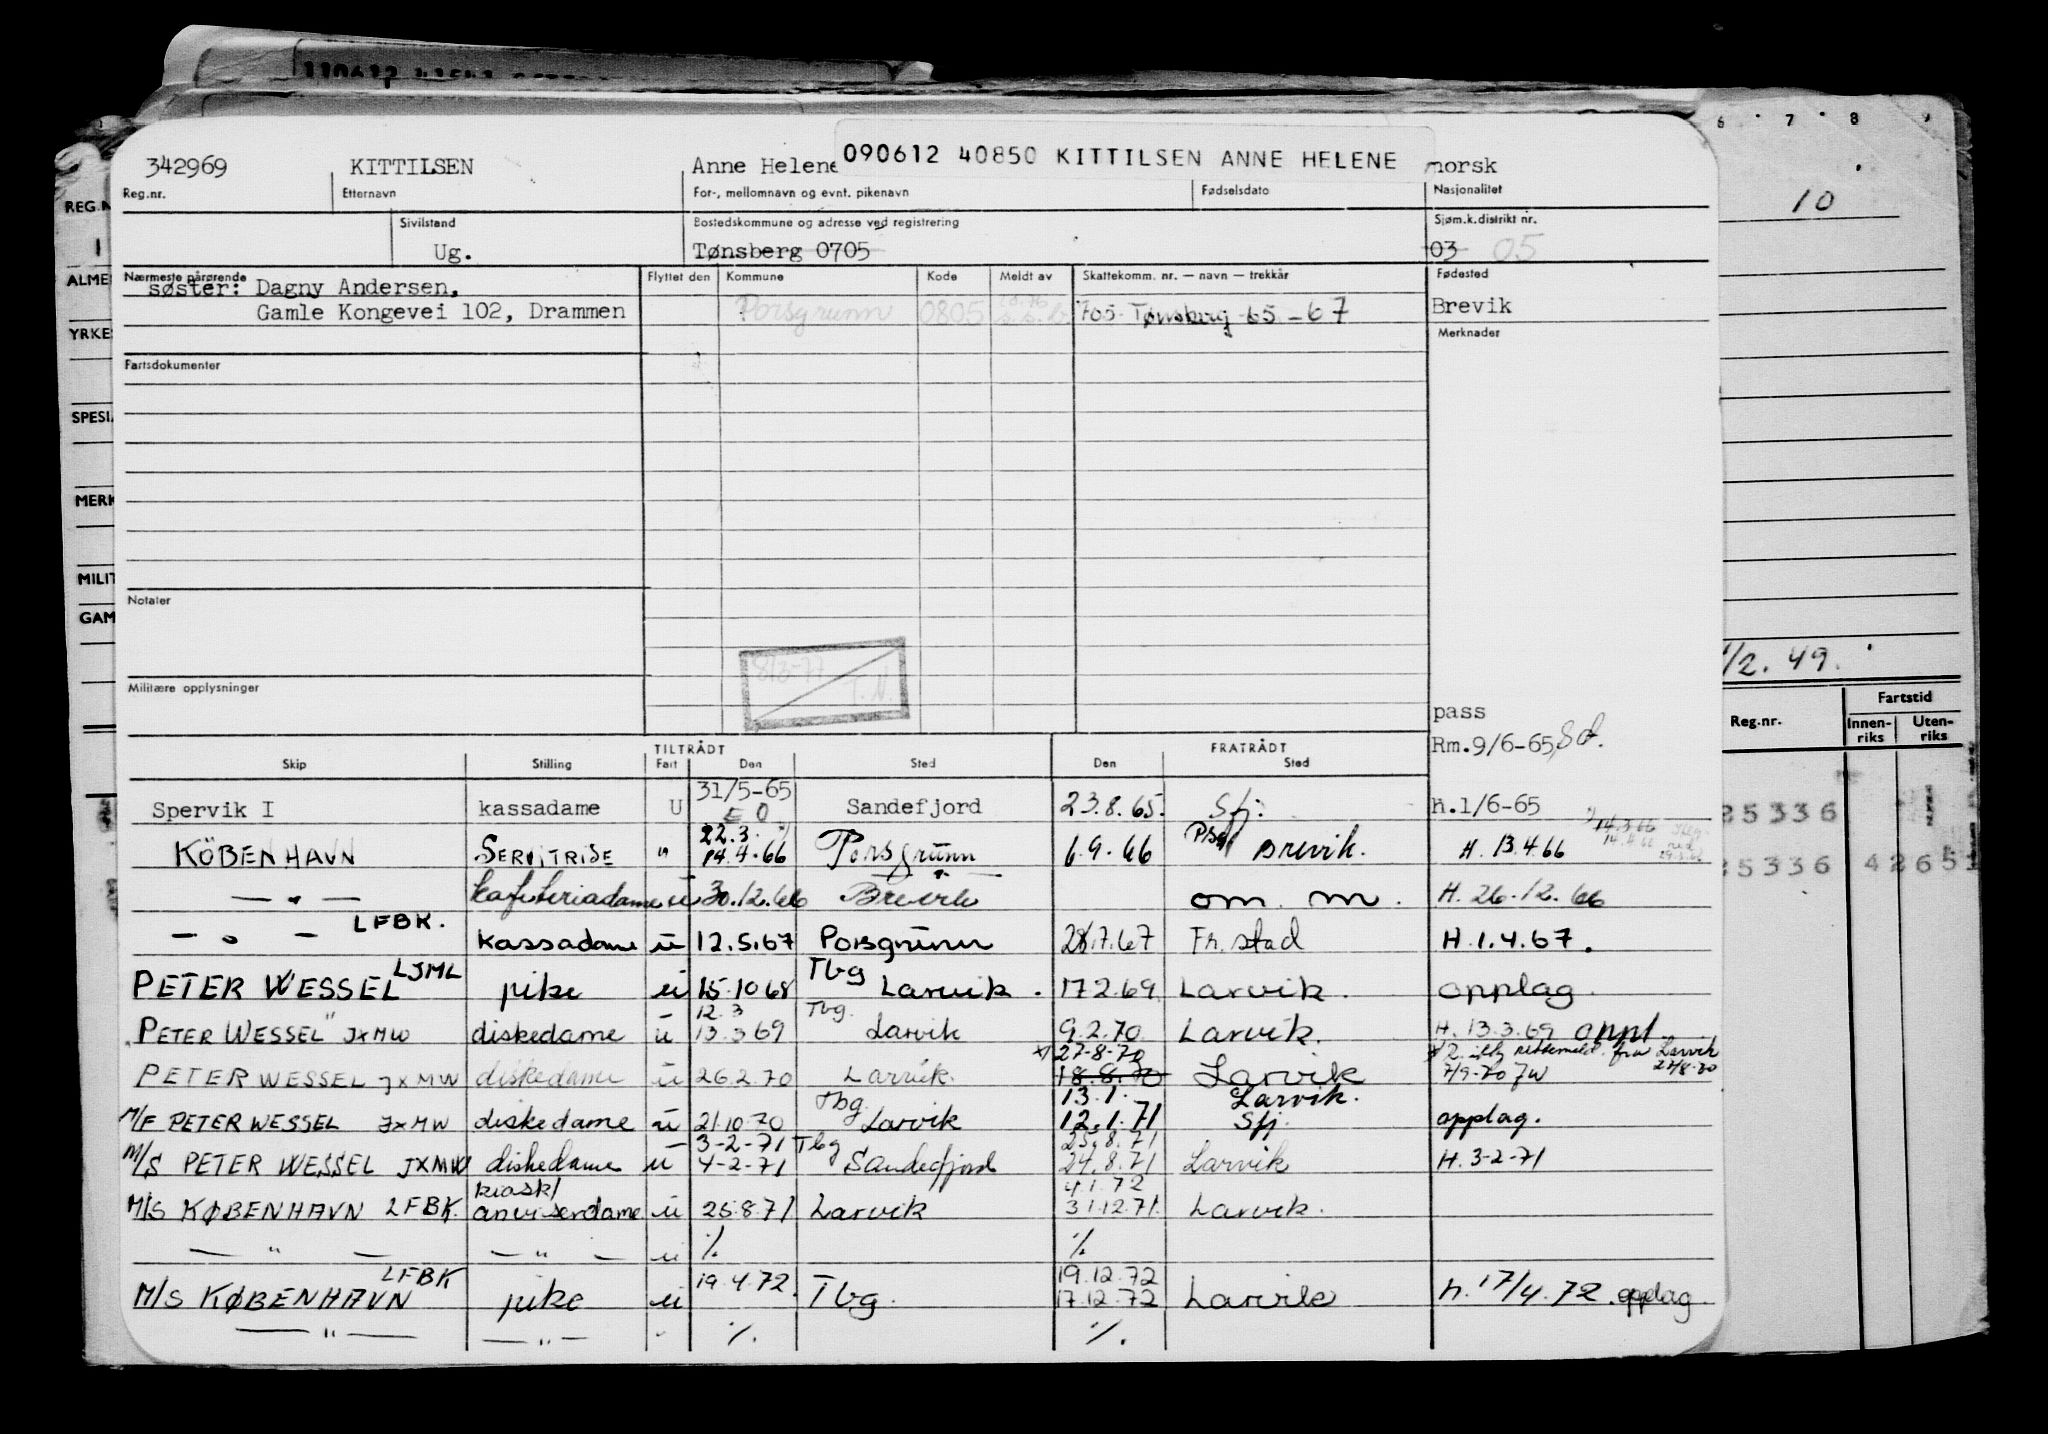 110612
6 7 8 9
090612 40850 KITTILSEN ANNE HELENE
342969 KITTILSEN Anne Helene norsk
Reg.nr. Etternavn For-, mellomnavn og evnt. pikenavn Fødselsdato Nasjonalitet
10
Sivilstand Bostedskommune og adresse ved registrering Sjøm.k.distrikt nr.
Ug. Tønsberg 0705 03 05
Nærmeste pårørende Flyttet den Kommune Kode Meldt av Skattekomm. nr. — navn — trekkår Fødested
søster: Dagny Andersen,
Gamle Kongevei 102, Drammen Porsgrunn 0805 705 Tønsberg 65-67 Brevik
Merknader
Fartsdokumenter
Notater
8/3-77 T.N.
Militære opplysninger
REG.N
ALME
YRKE
SPESI
MERK
MILIT
GAM
1/2. 49.
Reg.nr. Fartstid
Innenriks Utenriks
25336
25336 4265
pass
Rm.9/6-65, Sd.
TILTRÅDT FRATRÅDT
Skip Stilling Fart Den Sted Den Sted
Spervik I kassadame U 31/5-65 E.O. Sandefjord 23.8.65. Sfj. h.1/6-65
KÖBENHAVN SERVITRISE " 22.3. 14.4.66 Porsgrunn 6.9.66 Brevik. H. 13.4.66
— " — kafeteriadame u 30.12.66 Brevik om. m. H. 26.12.66
— " — LFBK. kassadame u 12.5.67 Porsgrunn 28.7.67 Fr.stad H.1.4.67.
PETER WESSEL LJML pike u 15.10 68 Tbg Larvik. 17 2.69 Larvik. opplag.
PETER WESSEL JXMW diskedame u 12.3 13.3 69 Tbg. Larvik 9.2.70 Larvik. H. 13.3.69 oppl.
PETER WESSEL JXMW diskedame u 26.2.70 Larvik. x) 27-8-70 18.8.70 Larvik fra Larvik 7/9-70 JW
M/F PETER WESSEL JXMW diskedame u 21.10.70 Tbg. Larvik 13.1. 12.1.71 Larvik. Sfj. opplag.
M/S PETER WESSEL JXMW diskedame u 3-2-71 4-2-71 Tbg Sandefjord 25.8.71 24.8.71 Larvik H. 3-2-71
M/S KØBENHAVN LFBK. kiosk/ anviserdame u 25.8.71 Larvik 4.1.72 31.12.71. Larvik.
— " — — " — u ./. ./.
M/S KØBENHAVN LFBK pike u 19.4.72. Tbg. 19.12.72 17.12.72 Larvik h. 17/4.72. opplag.
— " — — " — ./. ./.